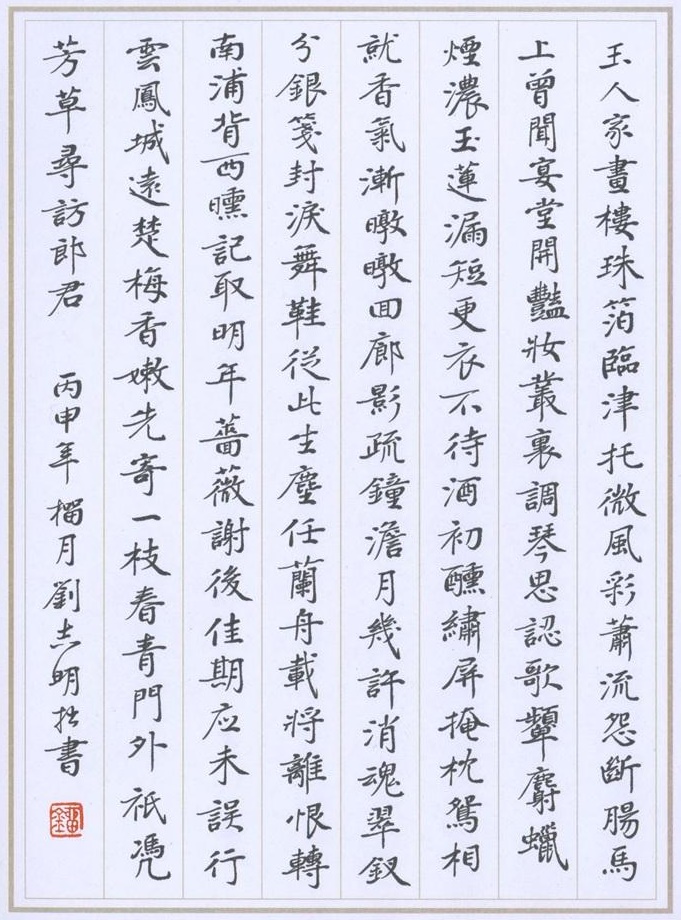 玉人家畫樓珠箔臨津托微風彩蕭流怨斷腸馬
上曾聞宴堂開豔妝叢裏調琴思認歌顰麝蠟
煙濃玉蓮漏短更衣不待酒初醺繡屏掩枕鴛相
就香氣漸暾暾回廊影疏鐘澹月幾許消魂翠釵
分銀箋封淚舞鞋從此生塵任蘭舟載將離恨轉
南浦背西曛記取明年薔薇謝後佳期应未誤行
雲鳳城遠楚梅香嫩先寄一枝春青門外祇凴
芳草尋訪郎君 丙申年榴月劉志明拙書